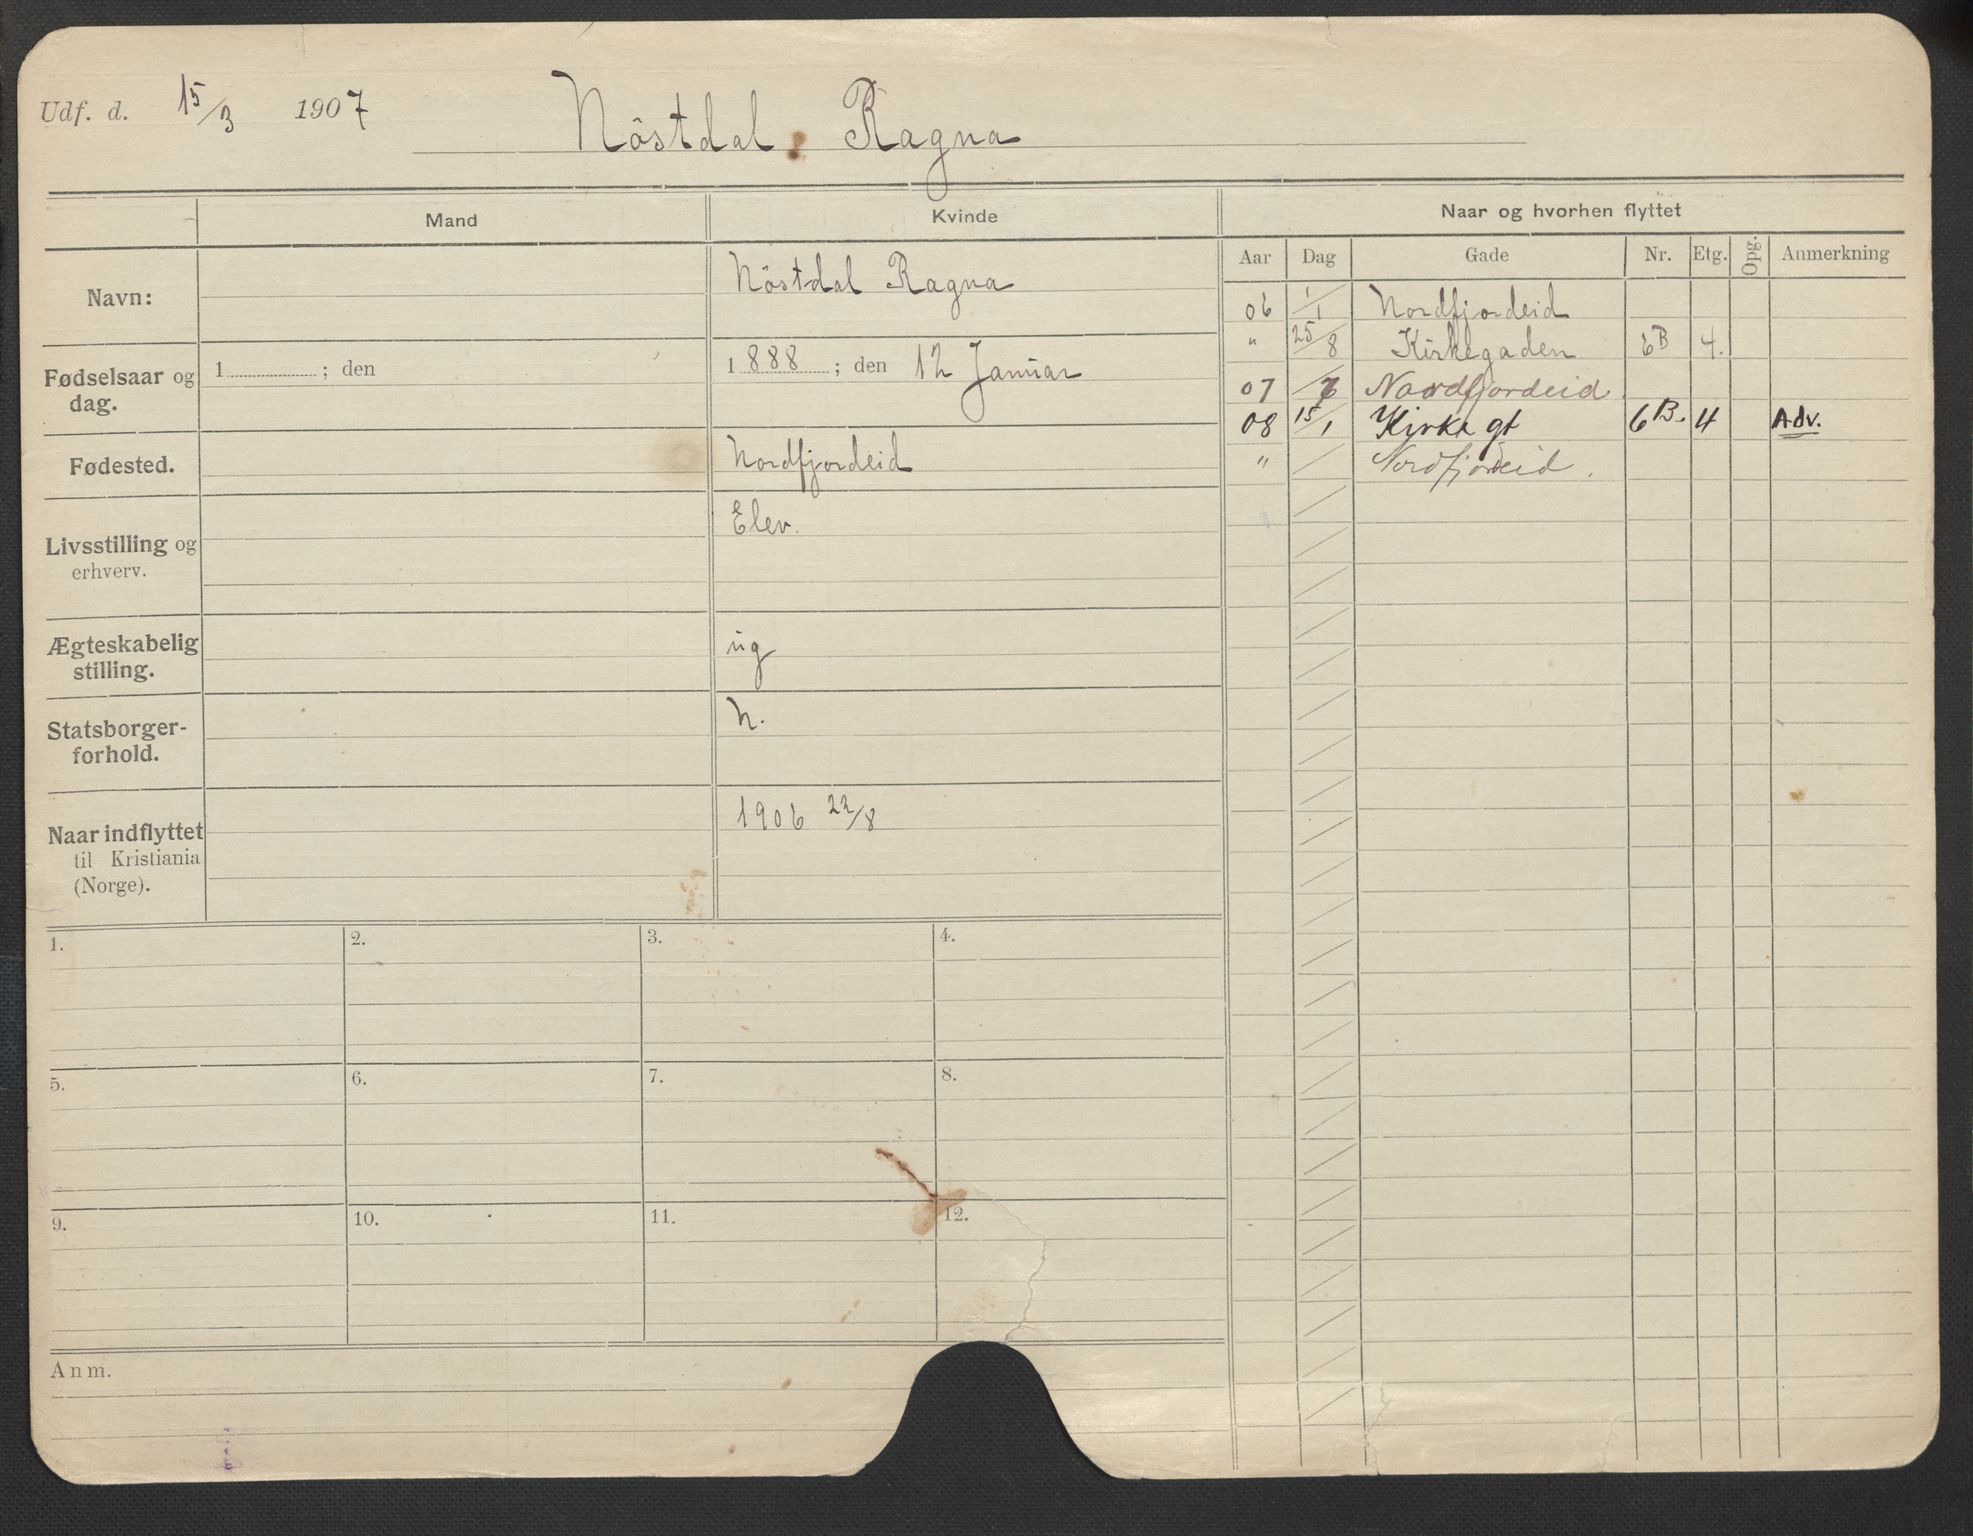 Udf. d. 15/3 1907 Nöstdal, Ragna
Mand Kvinde Naar og hvorhen flyttet
Aar Dag Gade Nr. Etg. Opg. Anmerkning
Navn: Nöstdal Ragna
Fødselsaar og dag. 1 ; den 1888 ; den 12 Januar
Fødested. Nordfjordeid
Livsstilling og erhverv. Elev.
Ægteskabelig stilling. ug
Statsborger-forhold. N.
Naar indflyttet til Kristiania (Norge). 1906 22/8
06 1/1 Nordfjordeid
" 25/8 Kirkegaden 6B 4.
07 / Nordfjordeid
08 15/1 Kirke gt 6B. 4 Adv.
" / Nordfjordeid.
1. 2. 3. 4.
5. 6. 7. 8.
9. 10. 11. 12.
Anm.